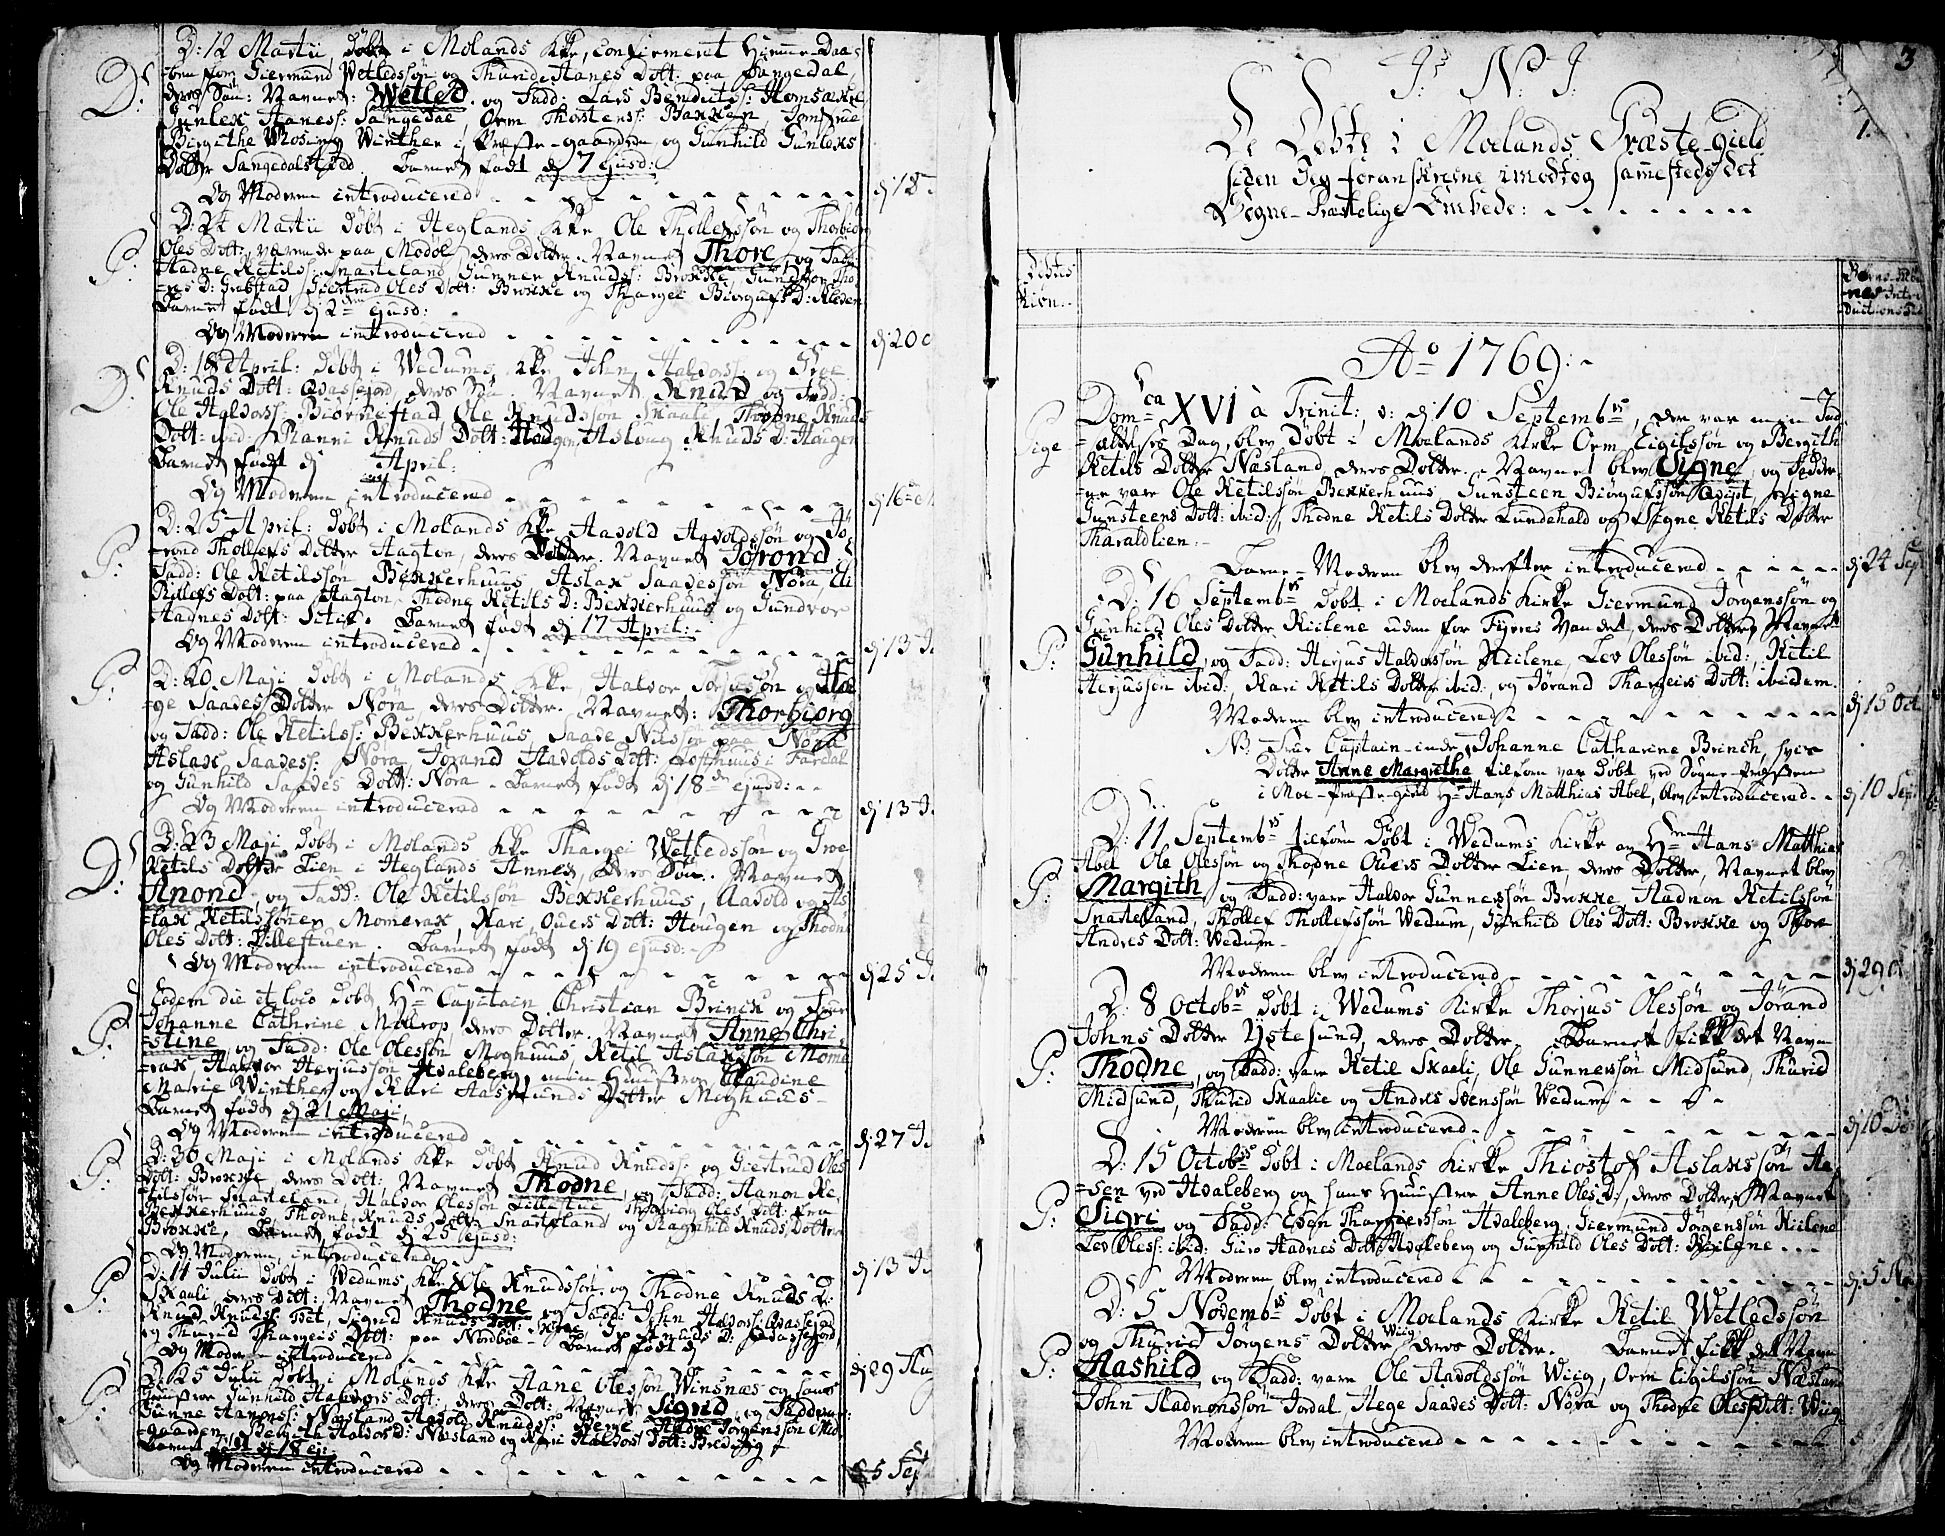 D: 12 Martii, döbt i Molands Kke, confirmeret Hiemme-Daa-
-ben for Giermund Wetledssön og Thurid Hanes Dott: paa Sangedal,
deres Sön: Navnet: Wetled. og Fadd: Lars Bendictss: Homsækre
Gunlex Haness: Sangedal, Orm Thorstenss: Baxxen, Jomfrue
Birgithe Mosing Winther i Præste-gaarden og Gunhild Gunlexs
Dotter Sangedalstædd. Barnet födt d 7 ejusd:
Og Moderen introducered d 18
D: 24 Martii döbt i Heglands Kke Ole Thollefssön og Thorbiörg
P:
Oles Dott: værende paa Modöl, deres Dotter. Navnet Thore, og Fadd:
Hadne Ketilss: Snarteland, Gunner Knudss: Broxxe, Gundvor Tho
-res D: Gribstad, Giertrud Oles Dott: Broxxe og Thargei Biörgufs D:
Barnet födt d 2den ejusd:
Og Moderen introducered d 20
D:
D: 18 April: döbt i Wedums Kke John Halvorss: og Groe
Knuds Dott: Qvassejord, deres Sön. Navnet Knud og Fadd:
Ole Halvorss: Biörnestad, Ole Knudssön Skaali, Thodne Knuds
Dott: ibid: Ranni Knuds Dott: Hougen, Asloug Knuds D: Hougen
Barnet födt d April:
Og Moderen introducered d 16
D: 25 April: döbt i Molands Kke Aavold Aavoldssön og Jö-
P:
-rond Thollefs Dotter Hagton, deres Dotter. Navnet Jörond.
Fadd: Ole Ketilssön Bexxerhuus, Aslax Saavessön Nora,
Rillefs Dott: paa Hagton, Thodne Ketils D: Bexxerhuus og Gundvor
Hagnes Dott: Barnet födt d 17 April:
Og Moderen introducered d 13 J
P:
D: 20 Maji döbt i Molands Kke, Halvor Torjussön og He-
-ge Saaves Dotter Nora, deres Dotter. Navnet: Thorbiörg
og Fadd: Ole Ketilss: Bexxerhuus, Saave Nilssön paa Nora
Aslax Saavess: Nora, Jorand Aavolds Dott: Lofthuus i Fardal
og Gunhild Saaves Dott: Nora. Barnet födt d 18de ejusd:
Og Moderen introducered d 13 J
D: 23 Maji döbt i Molands Kke Thargei Wetledssön og Groe
D:
Ketils Dotter Lien i Heglands Annex, deres Sön. Navnet
Anond, og Fadd: Ole Ketilssön Bexxerhuus, Aavold og As-
-lax Ketilssönner Momrax, Kari Ouvers Dott: Hougen og Thodne
Oles Dott: Lillestuen. Barnet födt d 19 ejusd:
Og Moderen introducered d 25 J
Eodem die et loco döbt Hr Capitain Christian Brinck og Frue
P:
Johanne Cathrine Moltrop, deres Dotter. Navnet Anne Chri-
-stine, og Fadd: Ole Olessön Moghuus, Ketil Aslaxssön Mom-
-rax, Halvor Herjussön Hvaleberg, min Huustroe Claudine
Marie Winther og Kari Aasmunds Dotter Moghuus
Barnet födt d 21 Maji,
Og Moderen introducered d 27 J
P:
D: 30 Maji i Molands Kke döbt Knud Knudss: og Giertrud Oles
Dott: Broxxe, deres Dott: Navnet Thodne og Fadd: Hanon Ke-
-tilssön Snarteland, Halvor Olessön Lillestue, Thorbiörg Oles Dott: fra
Bexxerhuus, Thodne Knuds Dott: Snarteland og Ragnhild Knuds Dotter
Broxxe, Barnet födt d 25 ejusd:
Og Moderen introducered d 13 J
P:
D: 11 Julii döbt i Wedums Kke Ole Knudssön og Thodne Knuds D:
Skaali, deres Dott: Navnet Thodne og Fadd: John Halvorss: Qvassejord
Knud Knudss: Sigrid Knuds Dott:
og Thurid Thargeis Dott: paa Nordboe Barnet födt d
Og Moderen introducered d 29 Aug
P:
D: 25 Julii döbt i Molands Kke Hane Olessön Winsnæs og hans
Huustroe Gunhild Halvors Dott:, deres Dott: Navnet Sigrid, og Fadderne:
Gunne Hanonss: Næsland, Aavold Knudss: Berge, Halvor Jörgenssön Mid-
-gaarden, Bergith Halvors D: Næsland og Kari Halvors Dott: Bredvig
Barnet födt d 18 ej:
Og Moderen introducered d 5 Sep
3
1.
J. N. J.
De Döbte i Moelands Præste-Gield
siden Jeg foranskrevne imodtog sammesteds det
Sogne-Præstelige Embede:
Döbtes
Kiön.
Barne-Mödr-
-nes Intro-
-ductions Tid
Ao 1769:
Domca XVI à Trinit:, d: d 10 Septembris, der var min Tid-
Pige
-altes Dag, blev döbt i Moelands Kirke Orm Eigilssön og Bergith
Ketils Dotter Næsland, deres Dotter. Navnet blev Signe, og Fadder-
-ne vare Ole Ketilssön Bexxerhuus, Gunsteen Biörgufssön Qvist, Signe
Gunsteens Dott: ibid:, Thodne Ketils Dotter Lundevald og Signe Ketils Dotter
Tharaldlien:
Barne-Moderen blev derefter introducered d 24 Sep
D: 16 Septembris döbt i Moelands Kirke Giermund Jörgenssön og
Gunhild Oles Dotter Kiilene uden for Fyrres Vandet, deres Dotter, Navnet
P:
Gunhild, og Fadd: Herjus Halvorssön Kiilene, Lev Olessön ibid:, Ketil
Herjussön ibid:, Kari Ketils Dotter ibid:, og Jörand Thargeirs Dott: ibidem.
Moderen blev introducered d 15 Oct
NB: Frue Capitain-inde Johanne Catharine Brinch, hvis
Dotter Anne Margrethe, tilforn var döbt ved Sogne-Præsten
i Moe-Præste-gield Hr Hans Matthias Abel, blev introducered d 10 Sept
D: 11 Septembris tilforn döbt i Wedums Kirke av Hr Hans Matthias
P:
Abel Ole Olessön og Thodne Ouvers Dotter Lien, deres Dotter, Navnet blev
Margith, og Fadd: vare Halvor Gunnerssön Broxxe, Hadnon Ketilssön
Snarteland, Thollef Thollefssön Wedum, Gunhild Oles Dott: Broxxe og Thore
Andres Dott: Wedum
Moderen blev introducered d 29
D: 8 Octobris döbt i Wedums Kirke Thorjus Olessön og Jörand
P:
Johns Dotter Ystesund, deres Dotter. Barnet fikk det Navn
Thodne, og Fadd: vare Ketil Skaali, Ole Gunnerssön Midsund, Thurid
Midsund, Thurid Skaalie og Andres Svenssön Wedum
Moderen blev introducered d 10 De
D: 15 Octobris döbt i Moelands Kirke Thiostof Aslaxssön Aa-
P:
-sen ved Hvaleberg og hans Huustroe Anne Oles D:, deres Dotter, Navnet
Sigri og Fadd: Even Thargierssön Hvaleberg, Giermund Jörgenssön Kiilene
Lev Oless: ibid: Guro Hadnes Dott: Hvaleberg og Gunhild Oles Dott: Kiilene
Moderen blev introducered d 5 No
D: 5 Novembris döbt i Moelands Kirke Ketil Wetledssön
P:
og Thurid Jörgens Dotter Wiig, deres Dotter. Barnet fikk det Navn
Aashild og Fadd: vare Ole Aavoldssön Wiig, Orm Eigilssön Næsland
John Hadnonssön Jordal, Hege Saaves Dott: Nora og Thodne Oles Dott: Wiig
Moderen blev introducered